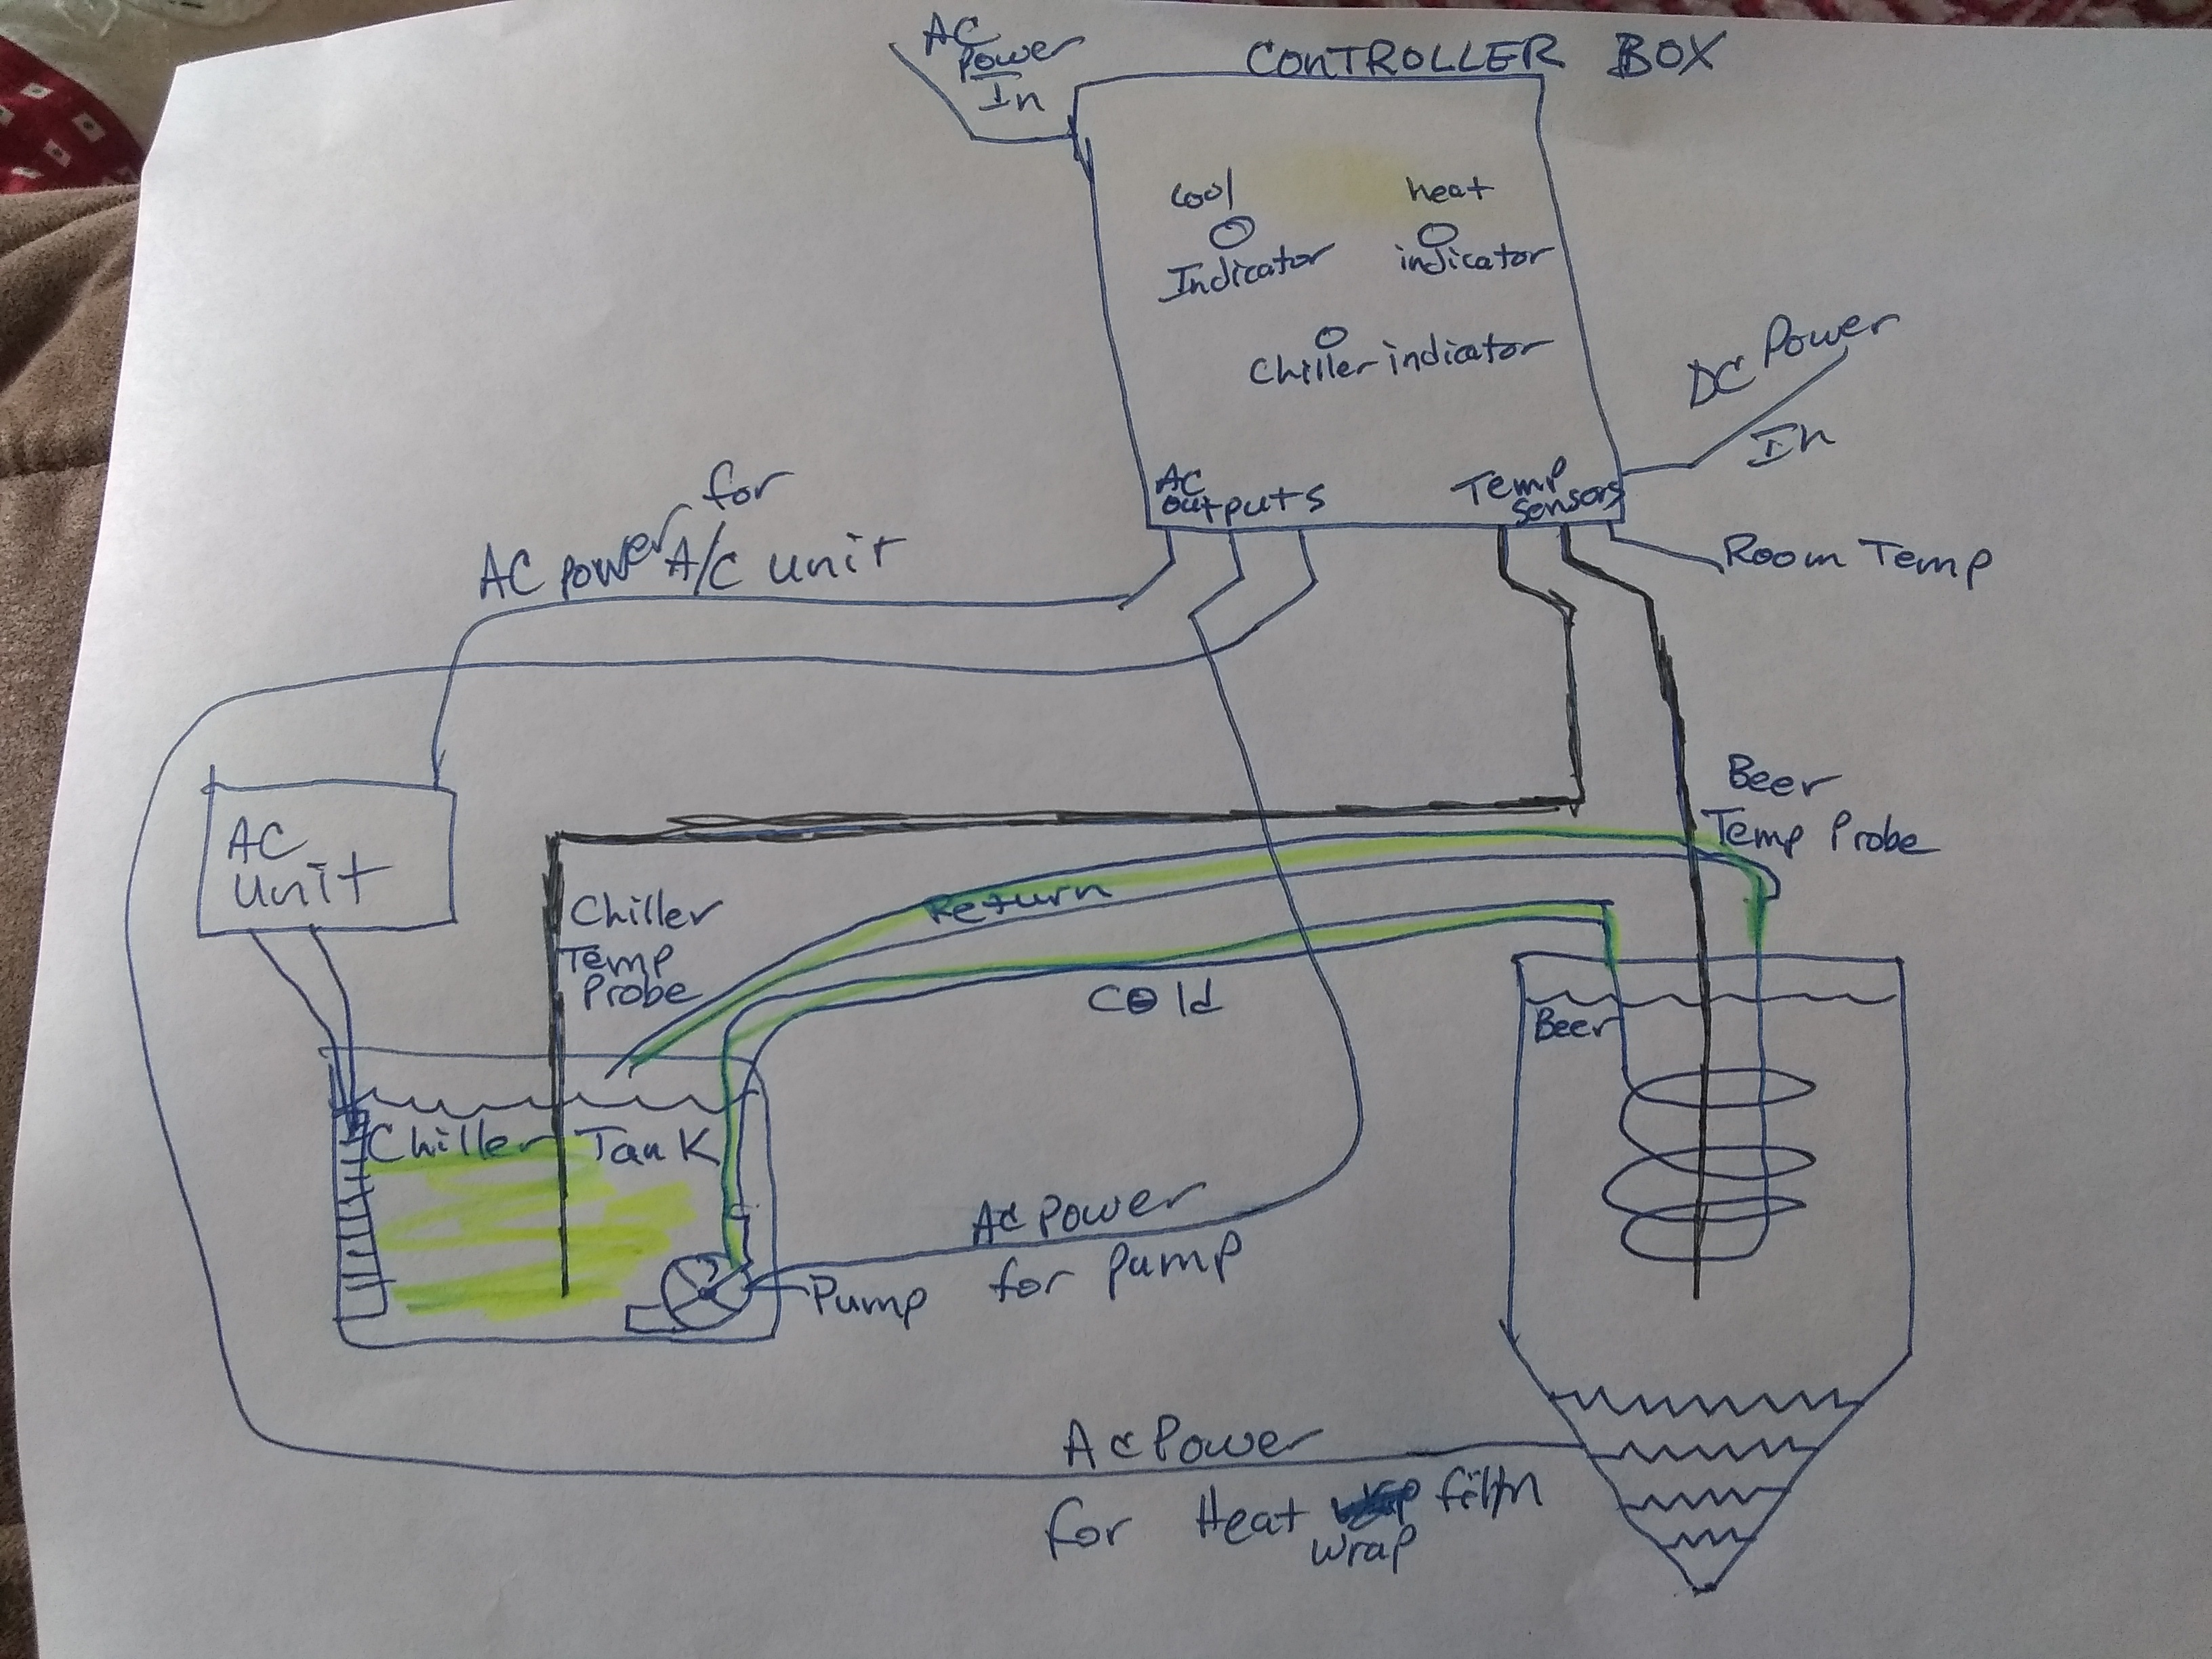 AC
Power
In
CONTROLLER BOX
Cool
Indicator
heat
indicator
Chiller indicator
DC Power
In
AC
outputs
Temp
Sensors
Room Temp
AC power for
A/C unit
AC
Unit
Chiller
Temp
Probe
Return
Cold
Beer
Temp Probe
Beer
Chiller Tank
Pump
AC Power
for pump
AC Power
for Heat film
wrap